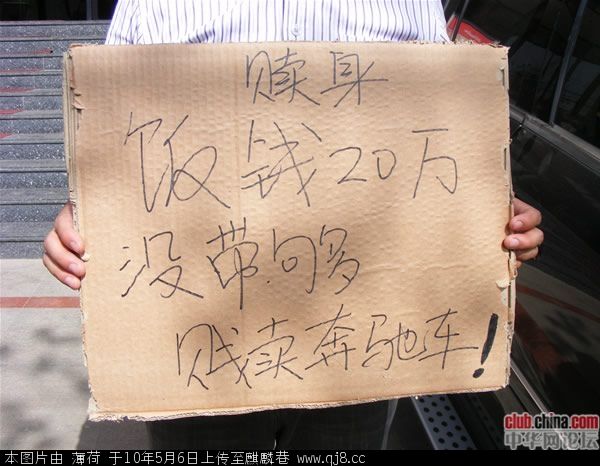 赎身
饭钱20万
没带够
贱卖奔驰车！
club.china.com
中华网论坛
本图片由 薄荷 于10年5月6日上传至麒麟巷 www.qj8.cc